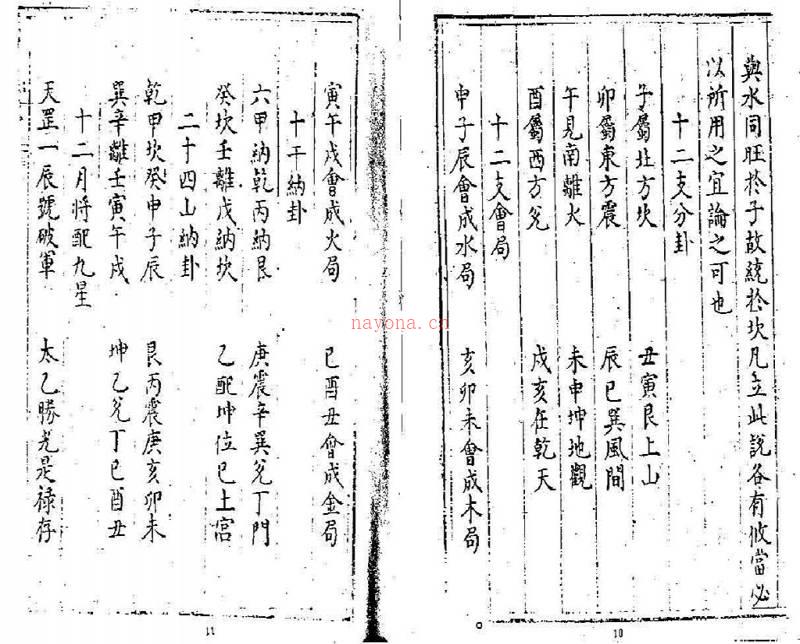 與水同旺於子故統於坎凡立此說各有攸當必
以所用之宜論之可也
十二支分卦
子屬北方坎 丑寅艮上山
卯屬東方震 辰巳巽風間
午見南離火 未申坤地觀
酉屬西方兌 戌亥在乾天
十二支會局
申子辰會成水局 亥卯未會成木局
10
寅午戌會成火局 巳酉丑會成金局
十干納卦
六甲納乾丙納艮 庚震辛巽兌丁門
癸坎壬離戊納坎 乙配坤位己土宮
二十四山納卦
乾甲坎癸申子辰 艮丙震庚亥卯未
巽辛離壬寅午戌 坤乙兌丁巳酉丑
十二月將配九星
天罡一辰號破軍 太乙勝光是祿存
11
nayona.cn